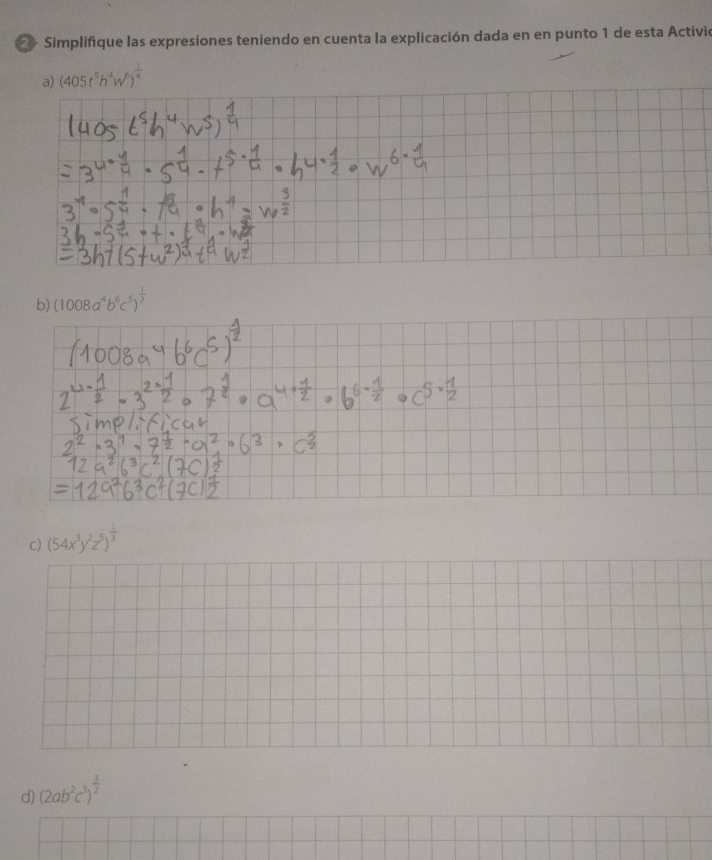 2 Simplifique las expresiones teniendo en cuenta la explicación dada en en punto 1 de esta Activid
a) (405t⁵h⁴w⁶)^(1/4)
(405 t⁵h⁴ w⁵)^(1/4)
= 3^(4·1/4) · 5^(1/4) · t^(5·1/4) · h^(4·1/2) · w^(6·1/4)
3¹ · 5^(1/4) · t^(5/4) · h¹ · w^(3/2)
3h · 5^(1/4) · t ·
= 3ht (5tw²)^(1/4) t^(1/4) w^(1/2)
b) (1008a⁴b⁶c⁵)^(1/2)
(1008a⁴b⁶c⁵)^(1/2)
2^(4·1/2) · 3^(2·1/2) · 7^(1/2) · a^(4·1/2) · b^(6·1/2) · c^(5·1/2)
simplificar
2² · 3¹ · 7^(1/2) · a² · b³ · c^(5/2)
12a²b³c²(7c)^(1/2)
= 12a²b³c²(7c)^(1/2)
c) (54x³y²z⁵)^(1/3)
d) (2ab²c³)^(3/2)